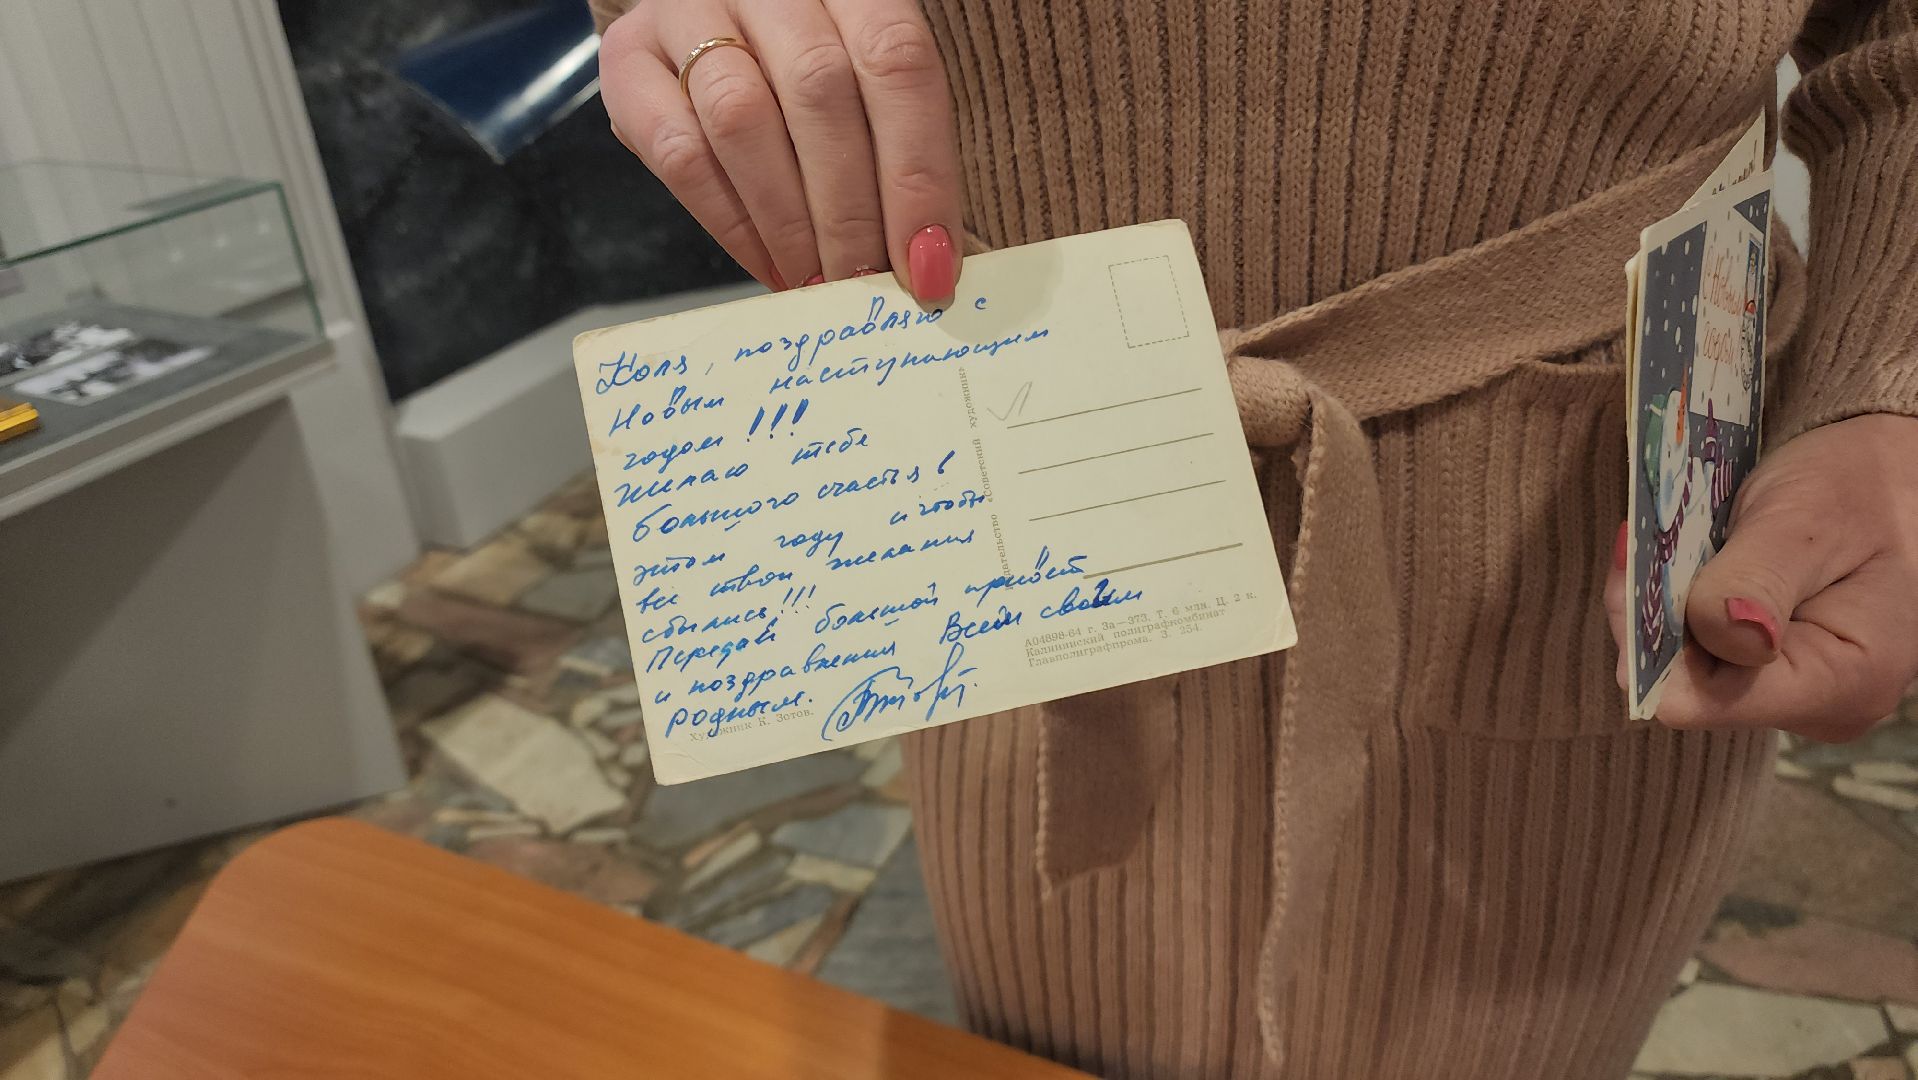 Коля, поздравляю с
Новым наступающим
годом!!!
Желаю тебе
большого счастья в
этом году и чтобы
все твои желания
сбылись!!!
Передай большой привет
и поздравления Всем своим
родным.
Художник К. Зотов.
Издательство «Советский художник»
А04898-64 г. За—373. Т. 6 млн. Ц. 2 к.
Калининский полиграфкомбинат
Главполиграфпрома. З. 254.
С Новым
годом